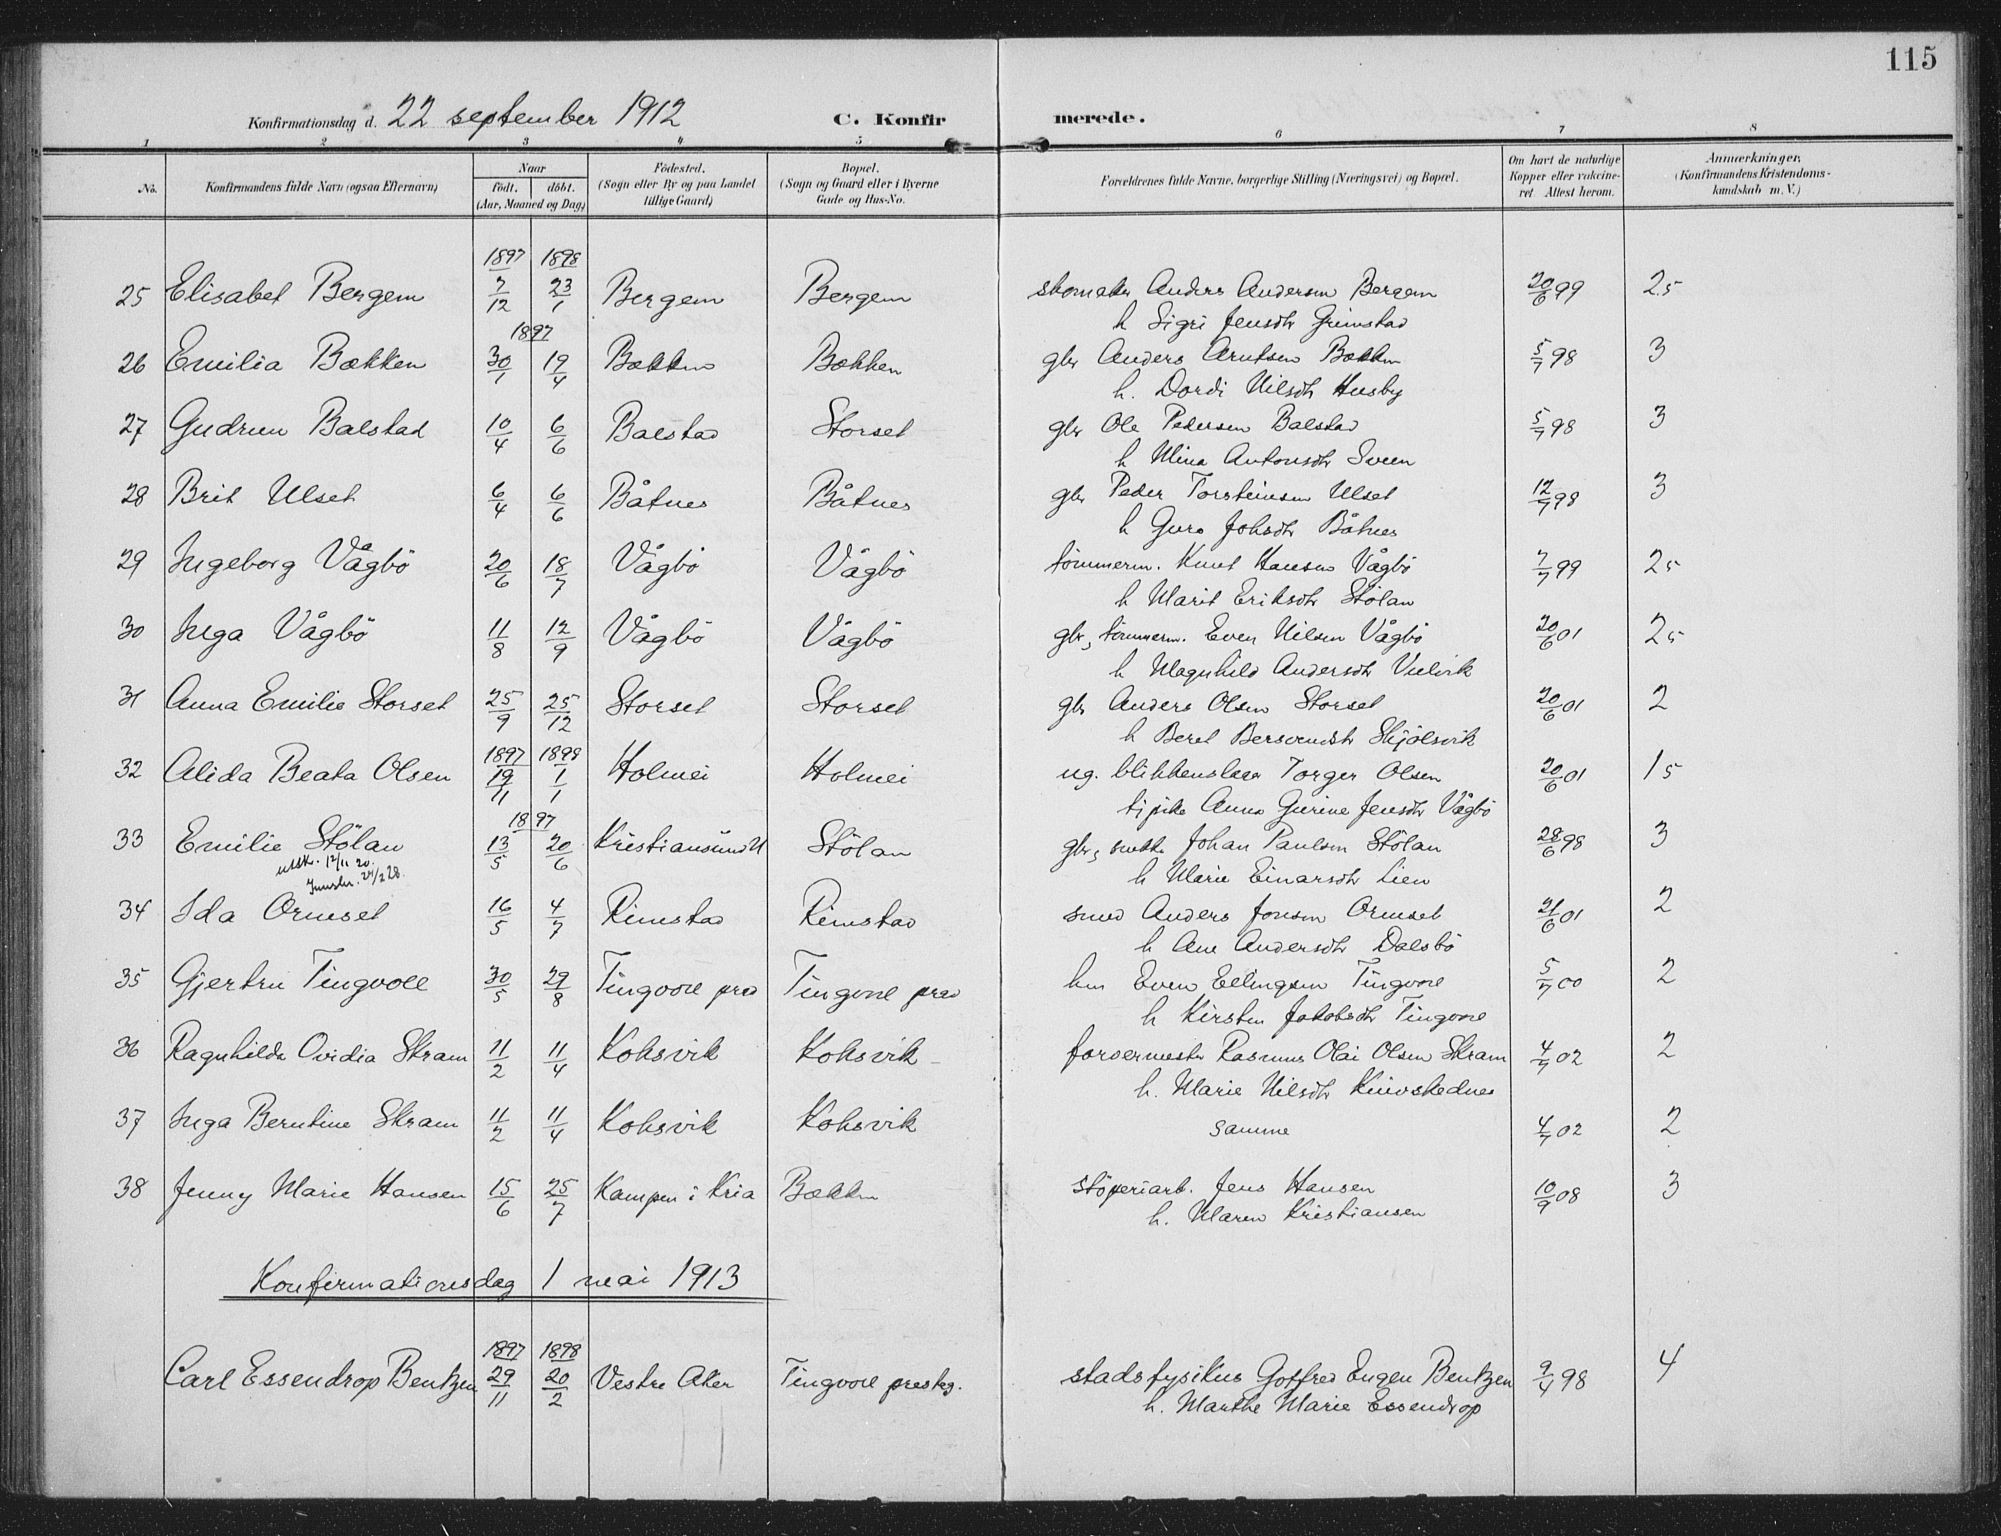 115
Konfirmationsdag d. 22 september 1912 C. Konfirmerede.
1 2 3 4 5 6 7 8
No. Konfirmandens fulde Navn (ogsaa Efternavn) Naar født. døbt. (Aar, Maaned og Dag) Fødested. (Sogn eller By og paa Landet tillige Gaard) Bopæl. (Sogn og Gaard eller i Byerne Gade og Hus-No. Forældrenes fulde Navne, borgerlige Stilling (Næringsvei) og Bopæl. Om havt de naturlige Kopper eller vaccineret. Attest herom. Anmærkninger. (Konfirmandens Kristendomskundskab m. V.)
1897 1898
25 Elisabet Bergem 7/12 23/1 Bergem Bergem skomaker Anders Andersen Bergem 20/6 99 2.5
h Sigri Jensdtr Grimstad
1897
26 Emilia Bækken 30/1 19/4 Bækken Bækken gbr Anders Arntsen Bækken 5/7 98 3
h. Dordi Nilsdtr Husby
27 Gudrun Balstad 10/4 6/6 Balstad Storset gbr Ole Pedersen Balstad 5/7 98 3
h Mina Antonsdtr Sveen
28 Brit Ulset 6/4 6/6 Båtnes Båtnes gbr Peder Torsteinsen Ulset 12/7 98 3
h Guro Johsdtr Båtnes
29 Ingeborg Vågbö 20/6 18/7 Vågbö Vågbö tömmerm. Knut Hansen Vågbö 7/7 99 25
h Marit Eriksdtr Stölan
30 Inga Vågbö 11/8 12/9 Vågbö Vågbö gbr, tömmerm. Even Nilsen Vågbö 20/6 01 25
h Magnhild Andersdtr
31 Anna Emilie Storset 25/9 25/12 Storset Storset gbr Anders Olsen Storset 20/6 01 2
h Beret Bersvendsdtr Skjölsvik
1897 1898
32 Alida Beata Olsen 19/11 1/1 Holmei Holmei ug. blikkenslager Torger Olsen 20/6 01 15
" pike Anna Gurine Jensdtr Vågbö
1897
33 Emilie Stölan 13/5 20/6 Kristiansund N Stölan gbr, Johan Paulsen Stölan 28/6 98 3
utsk. 12/11 20. h Marie Einarsdtr Lien
24/2 28.
34 Ida Ormset 16/5 4/7 Rimstad Rimstad smed Anders Jonsen Ormset 21/6 01 2
h Ane Andersdtr Dalsbö
35 Gjertru Tingvoll 30/5 29/8 Tingvoll Tingvoll hm Even Ellingsen Tingvoll 5/7 00 2
h Kirsten Jakobsdtr Tingvoll
36 Ragnhilda Ovidia Skram 11/2 11/4 Koksvik Koksvik farvermester Rasmus Olai Olsen Skram 4/7 02 2
h. Marie Nilsdtr
37 Inga Berntine Skram 11/2 11/4 Koksvik Koksvik samme 4/7 02 2
38 Jenny Marie Hansen 15/6 25/7 Kampen i Kria Bækken stöperiarb. Jens Hansen 10/9 08 3
h. Maren Kristiansen
Konfirmationsdag 1 mai 1913
1897 1898
Carl Essendrop Bentzen 29/11 20/2 Vestre Aker Tingvoll prestg. stadsfysikus Gotfred Eugen Bentzen 9/4 98 4
h. Marthe Marie Essendrop